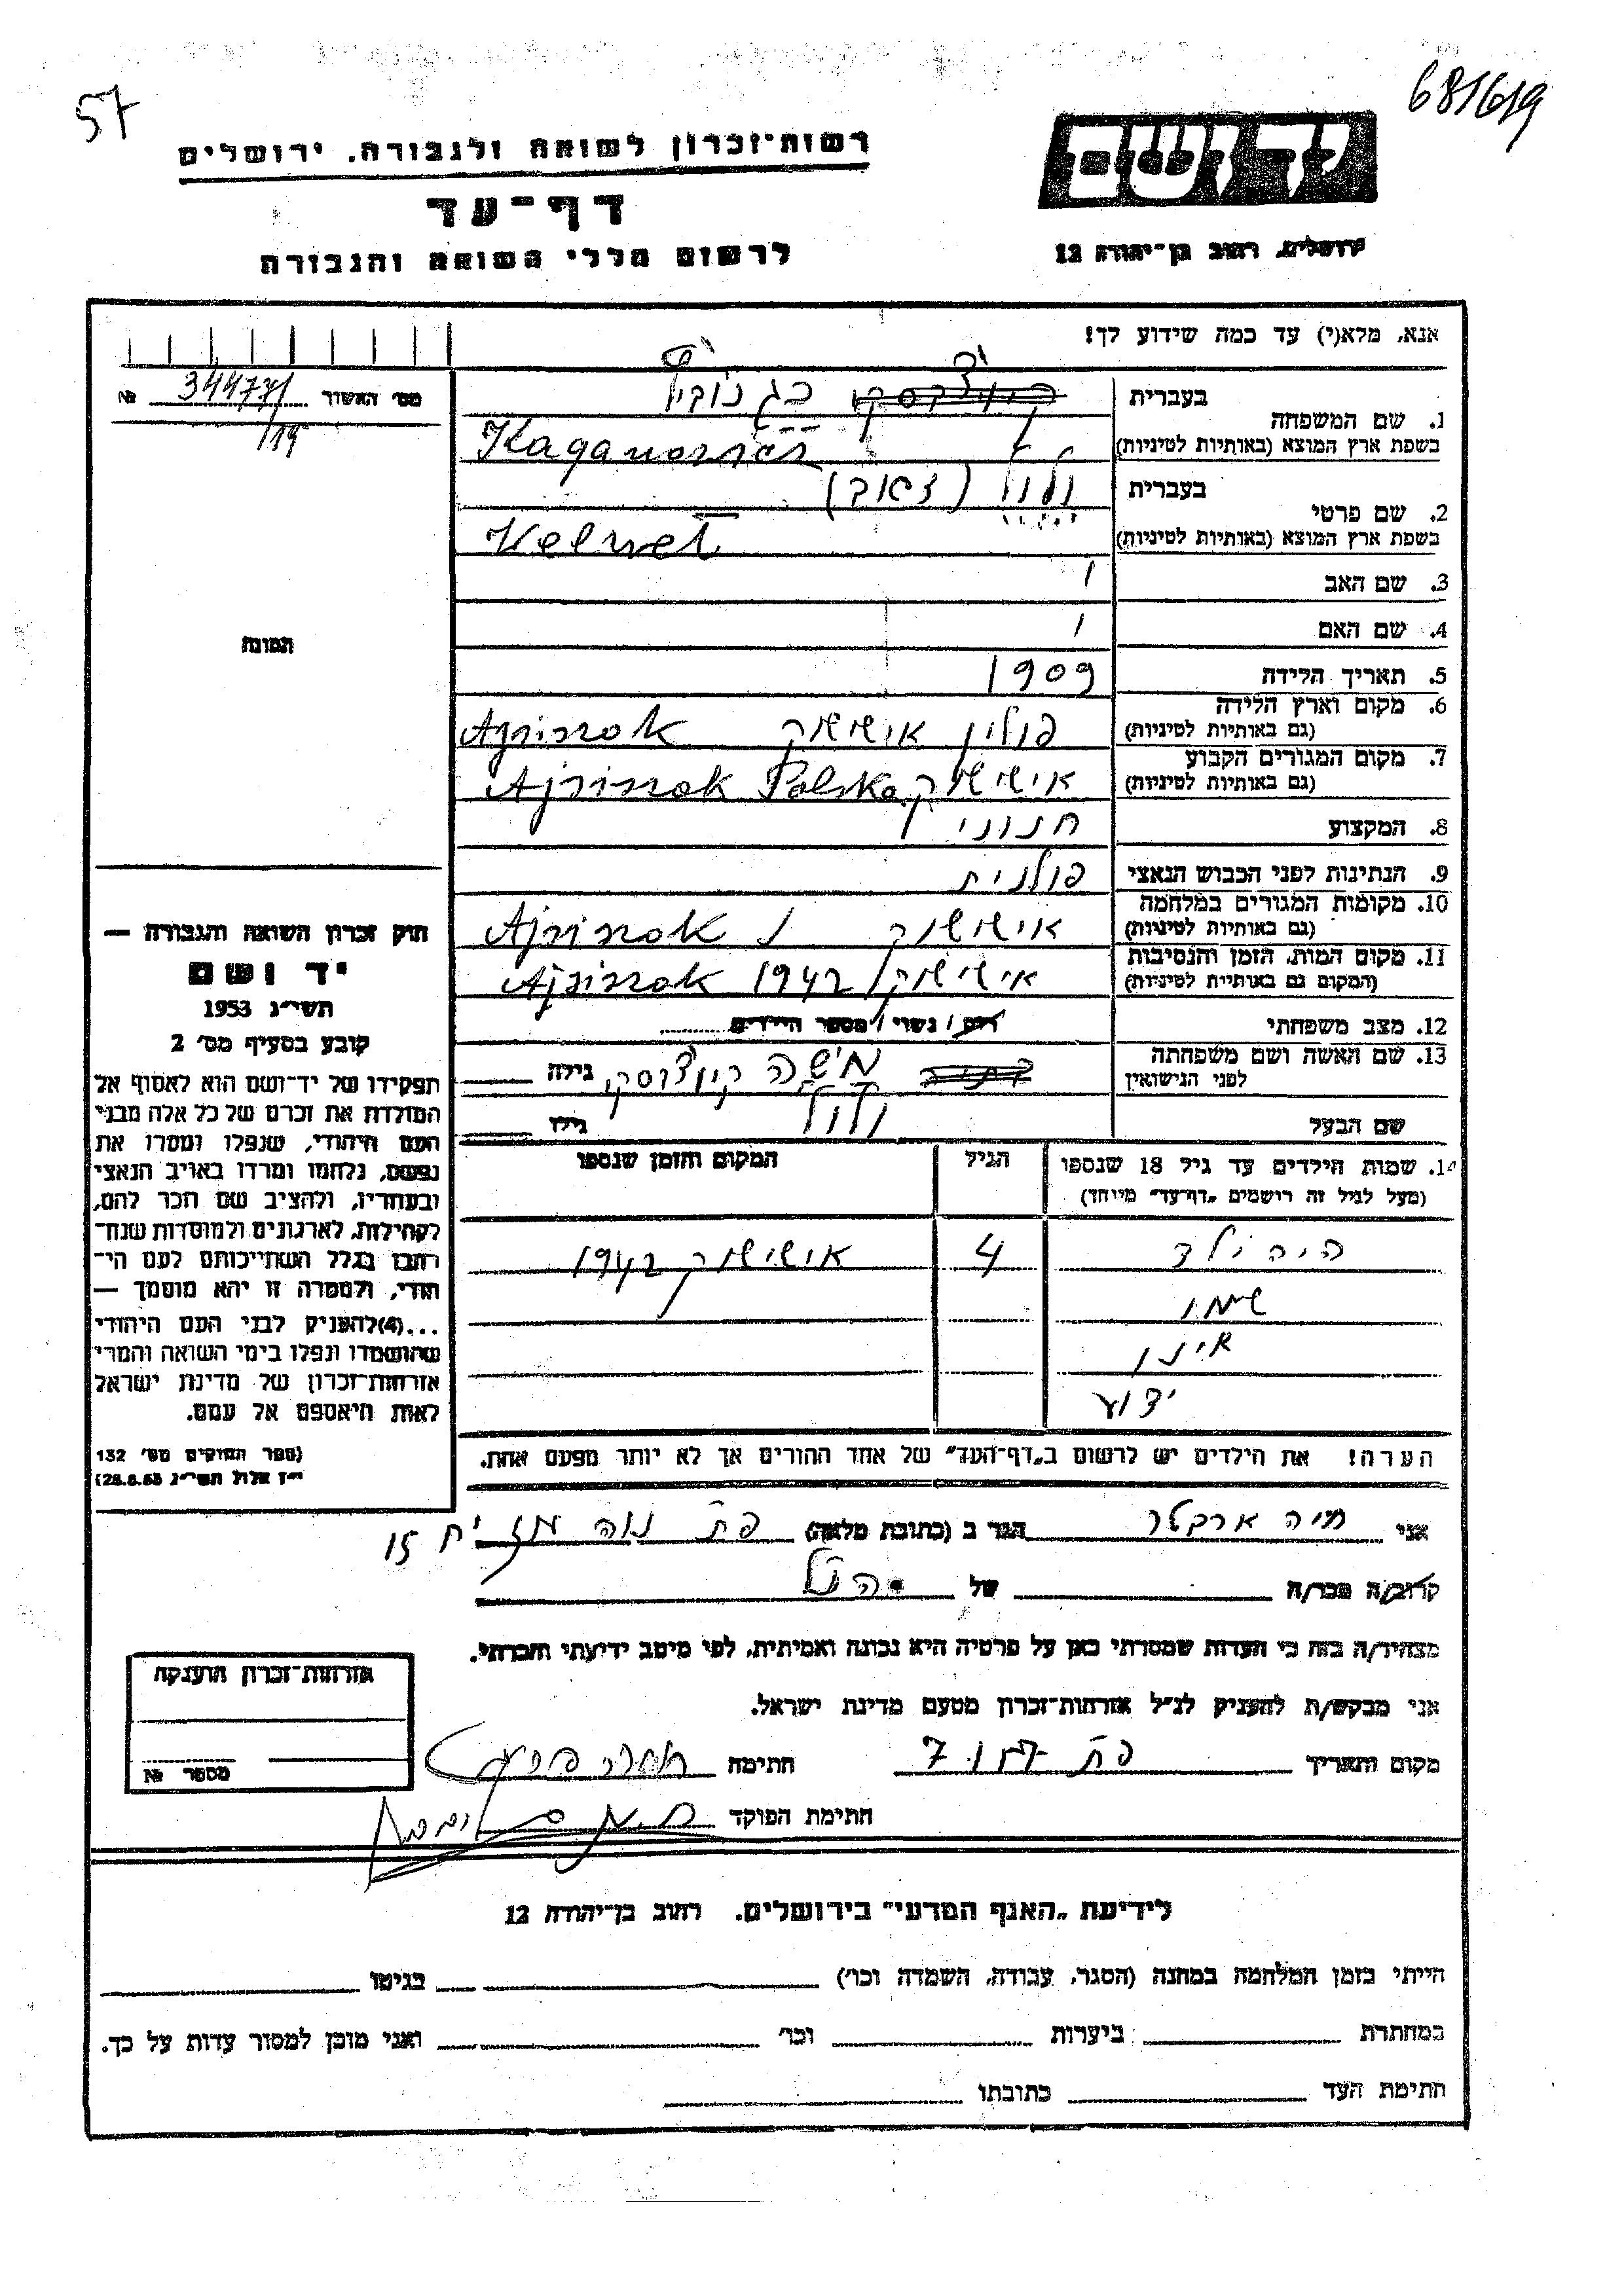 57
681619
רשות-זכרון לשואה ולגבורה, ירושלים
יד ושם
דף-עד
לרשום חללי השואה והגבורה
ירושלים, רחוב בן-יהודה 12
אנא, מלא(י) עד כמה שידוע לך!
מס׳ האשור 344771 №
/19
בעברית
כגנוביץ
1. שם המשפחה
בשפת ארץ המוצא (באותיות לטיניות) Kaganowicz
בעברית וולול (זאב)
2. שם פרטי
בשפת ארץ המוצא (באותיות לטיניות) Velwel
3. שם האב
4. שם האם
5. תאריך הלידה 1909
6. מקום וארץ הלידה
(גם באותיות לטיניות) פולין אישישוק Ajsiszok
7. מקום המגורים הקבוע
(גם באותיות לטיניות) אישישוק Ajsiszok Polska
8. המקצוע חנווני
9. הנתינות לפני הכבוש הנאצי פולנית
10. מקומות המגורים במלחמה
(גם באותיות לטיניות) אישישוק Ajsiszok
11. מקום המות, הזמן והנסיבות
(המקום גם באותיות לטיניות) אישישוק 1942 Ajsiszok
12. מצב משפחתי רווק / נשוי / מספר הילדים
13. שם האשה ושם משפחתה
לפני הנישואין
גילה
שם הבעל וולול גילו
14. שמות הילדים עד גיל 18 שנספו
(מעל לגיל זה רושמים „דף-עד״ מיוחד)
הגיל
המקום והזמן שנספו
היה ילד 4 אישישוק 1942
שמו
אינו
ידוע
הערה! את הילדים יש לרשום ב„דף-העד״ של אחד ההורים אך לא יותר מפעם אחת.
התמונה
חוק זכרון השואה והגבורה —
יד ושם
תשי״ג 1953
קובע בסעיף מס׳ 2
תפקידו של יד-ושם הוא לאסוף אל
המולדת את זכרם של כל אלה מבני
העם היהודי, שנפלו ומסרו את
נפשם, נלחמו ומרדו באויב הנאצי
ובעוזריו, ולהציב שם וזכר להם,
לקהילות, לארגונים ולמוסדות שנח־
רבו בגלל השתייכותם לעם הי־
הודי, ולמטרה זו יהא מוסמך —
...(4) להעניק לבני העם היהודי
שהושמדו ונפלו בימי השואה והמרי
אזרחות-זכרון של מדינת ישראל
לאות היאספם אל עמם.
(ספר החוקים מס׳ 132
י״ז אלול תשי״ג 28.8.53)
אני הגר ב (כתובת מלאה) 15
קרוב/ה מכר/ה של הנ״ל
מצהיר/ה בזה כי העדות שמסרתי כאן על פרטיה היא נכונה ואמיתית, לפי מיטב ידיעתי והכרתי.
אני מבקש/ת להעניק לנ״ל אזרחות-זכרון מטעם מדינת ישראל.
מקום ותאריך חתימה
חתימת הפוקד
אזרחות-זכרון הוענקה
מספר №
לידיעת „האגף המדעי״ בירושלים. רחוב בן-יהודה 12
הייתי בזמן המלחמה במחנה (הסגר, עבודה, השמדה וכו׳) בגיטו
במחתרת ביערות וכו׳ ואני מוכן למסור עדות על כך.
חתימת העד כתובתו